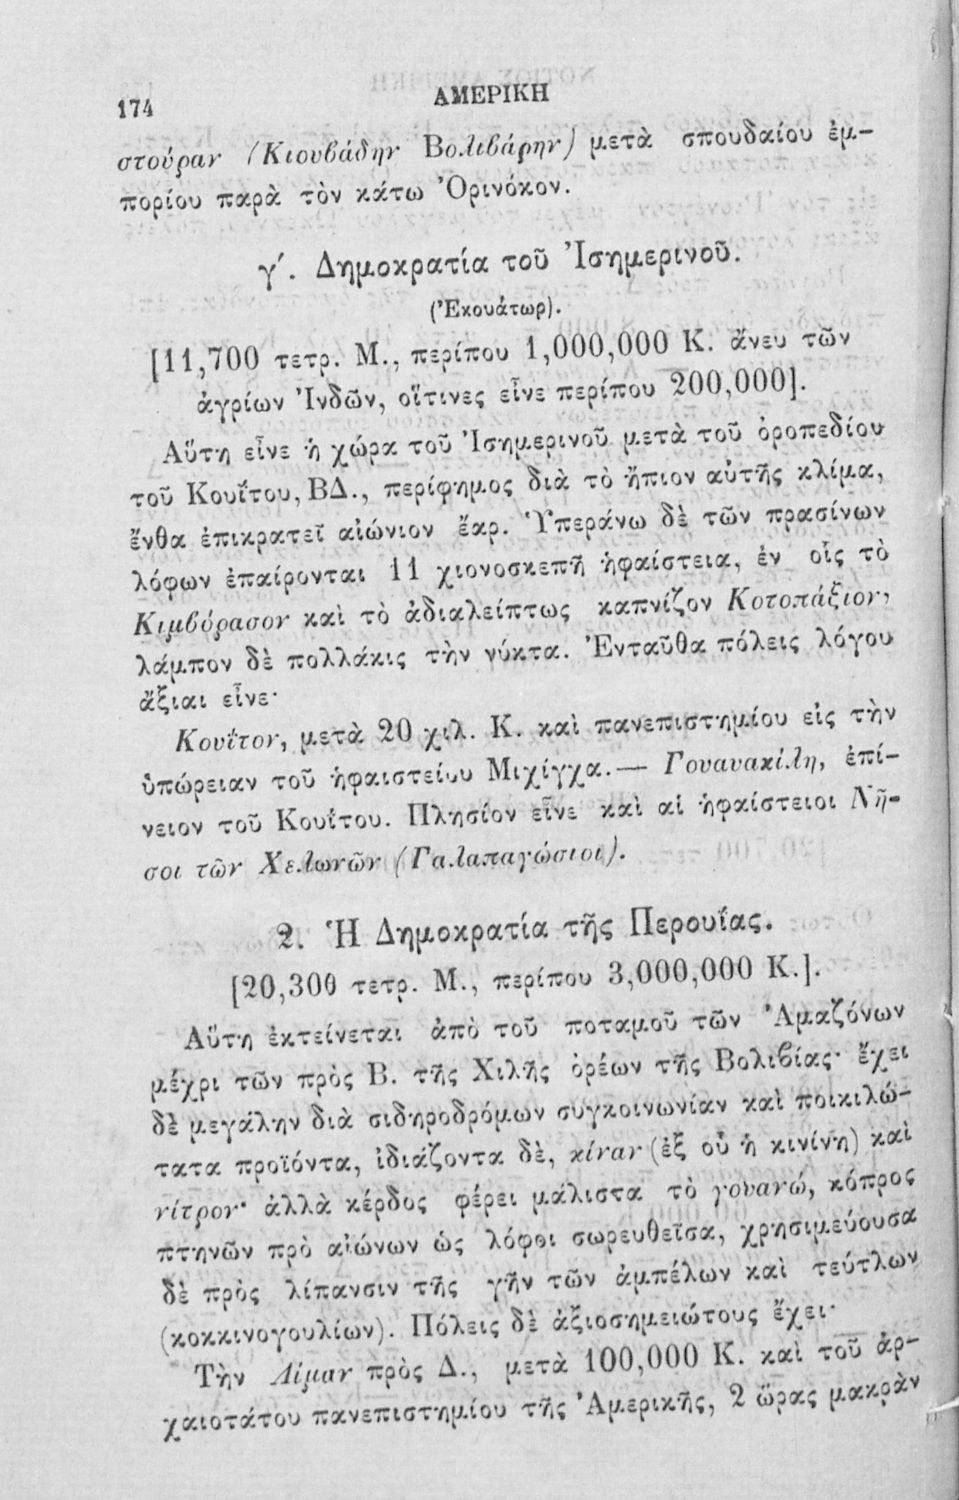 174
ΑΜΕΡΙΚΗ
στούραν (Κιουβάδην Βολιβάρην) μετὰ σπουδαίου ἐμ-
πορίου παρὰ τὸν κάτω Ὀρινόκον.
γ΄. Δημοκρατία τοῦ Ἰσημερινοῦ.
(Ἐκουάτωρ).
[11,700 τετρ. Μ., περίπου 1,000,000 Κ. ἄνευ τῶν
ἀγρίων Ἰνδῶν, οἵτινες εἶνε περίπου 200,000].
Αὕτη εἶνε ἡ χώρα τοῦ Ἰσημερινοῦ μετὰ τοῦ ὀροπεδίου
τοῦ Κουΐτου, ΒΔ., περίφημος διὰ τὸ ἤπιον αὐτῆς κλίμα,
ἔνθα ἐπικρατεῖ αἰώνιον ἔαρ. Ὑπεράνω δὲ τῶν πρασίνων
λόφων ἐπαίρονται 11 χιονοσκεπῆ ἡφαίστεια, ἐν οἷς τὸ
Κιμβόρασον καὶ τὸ ἀδιαλείπτως καπνίζον Κοτοπάξιον,
λάμπον δὲ πολλάκις τὴν νύκτα. Ἐνταῦθα πόλεις λόγου
ἄξιαι εἶνε·
Κουΐτον, μετὰ 20 χιλ. Κ. καὶ πανεπιστημίου εἰς τὴν
ὑπώρειαν τοῦ ἡφαιστείου Μιχίγχα.— Γουαυακίλη, ἐπί-
νειον τοῦ Κουΐτου. Πλησίον εἶνε καὶ αἱ ἡφαίστειοι Νῆ-
σοι τῶν Χελωνῶν (Γαλαπαγώσιοι).
2. Ἡ Δημοκρατία τῆς Περουΐας.
[20,300 τετρ. Μ., περίπου 3,000,000 Κ.].
Αὕτη ἐκτείνεται ἀπὸ τοῦ ποταμοῦ τῶν Ἀμαζόνων
μέχρι τῶν πρὸς Β. τῆς Χιλῆς ὀρέων τῆς Βολιβίας· ἔχει
δὲ μεγάλην διὰ σιδηροδρόμων συγκοινωνίαν καὶ ποικιλώ-
τατα προϊόντα, ἰδιάζοντα δὲ, κίναν (ἐξ οὗ ἡ κινίνη) καὶ
νίτρον· ἀλλὰ κέρδος φέρει μάλιστα τὸ γουανώ, κόπρος
πτηνῶν πρὸ αἰώνων ὡς λόφοι σωρευθεῖσα, χρησιμεύουσα
δὲ πρὸς λίπανσιν τῆς γῆν τῶν ἀμπέλων καὶ τεύτλων
(κοκκινογουλίων). Πόλεις δὲ ἀξιοσημειώτους ἔχει·
Τὴν Λίμαν πρὸς Δ., μετὰ 100,000 Κ. καὶ τοῦ ἀρ-
χαιοτάτου πανεπιστημίου τῆς Ἀμερικῆς, 2 ὥρας μακρὰν